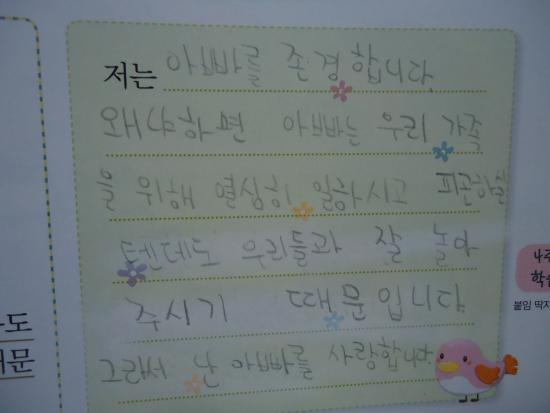 저는 아빠를 존경합니다.
왜냐하면 아빠는 우리 가족
을 위해 열심히 일하시고 피곤하실
텐데도 우리들과 잘 놀아
주시기 때문입니다.
그래서 난 아빠를 사랑합니다.
나
학습
붙임 딱지
도
여문